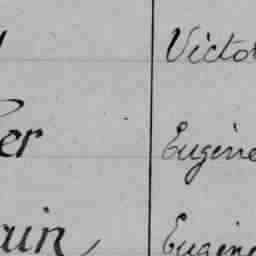 Victo
er Eugène
ain Eugén